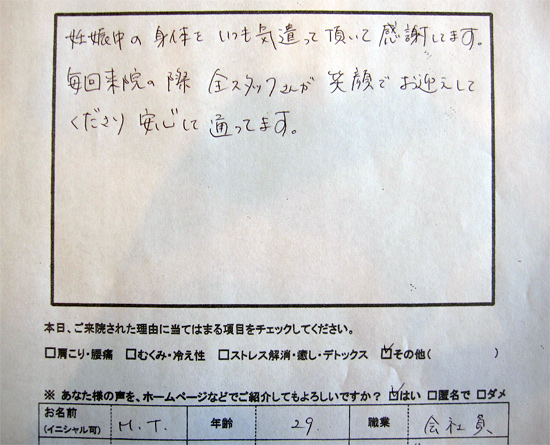 妊娠中の身体をいつも気遣って頂いて感謝してます。
毎回来院の際 全スタッフさんが笑顔でお迎えして
くださり安心して通ってます。
本日、ご来院された理由に当てはまる項目をチェックしてください。
□肩こり・腰痛 □むくみ・冷え性 □ストレス解消・癒し・デトックス ☑その他( )
※ あなた様の声を、ホームページなどでご紹介してもよろしいですか? ☑はい □匿名で □ダメ
お名前 (イニシャル可) M.T. 年齢 29. 職業 会社員